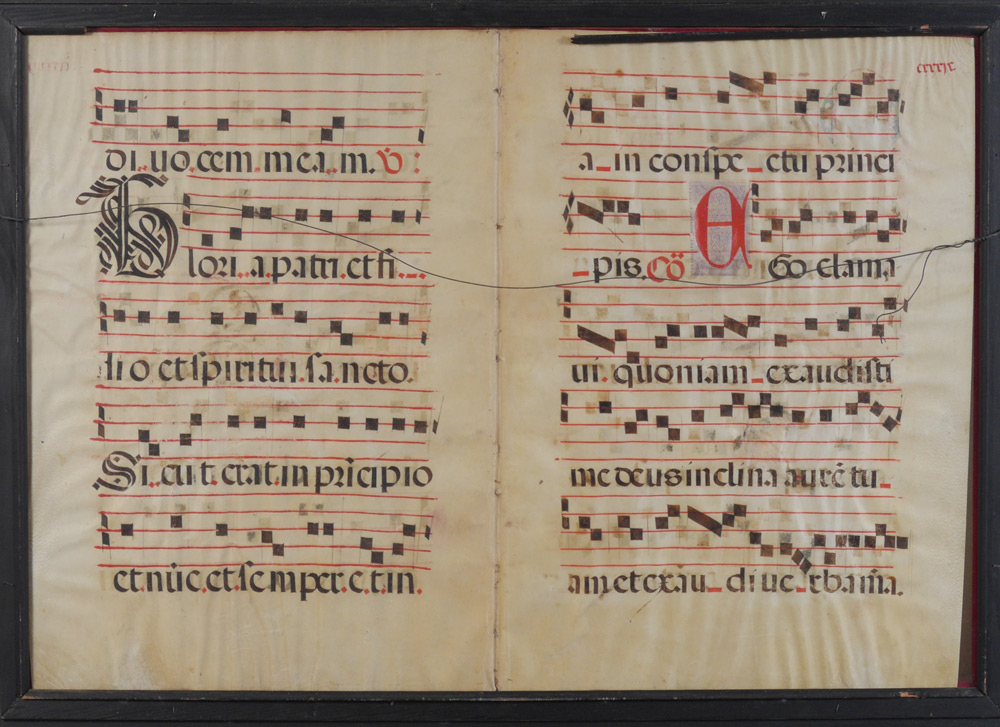 di..uo.cem.mea.m. V̄ :
Glori..a.patri.et fi_
lio et spiritui.sa.ncto.
Si..cu.t.erat.in prīcipio
et.nūc.et.semper.e.t.in.
a_in conspe_ctu princi
_pis. Cō EGo clama
ui. quoniam_exaudisti
me deus inclina aurē tu_
am et exau_di ue_rba m̄a.